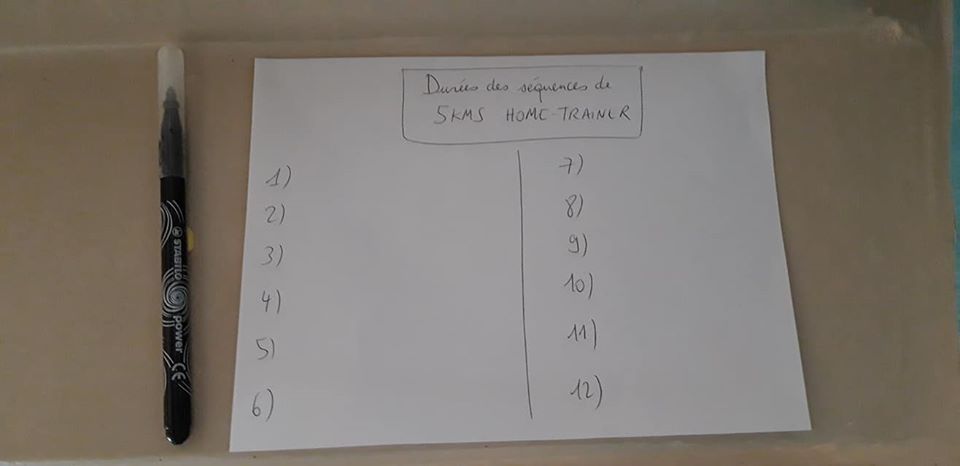 Durées des séquences de
5KMS HOME-TRAINER
1)
2)
3)
4)
5)
6)
7)
8)
9)
10)
11)
12)
STABILO power CE